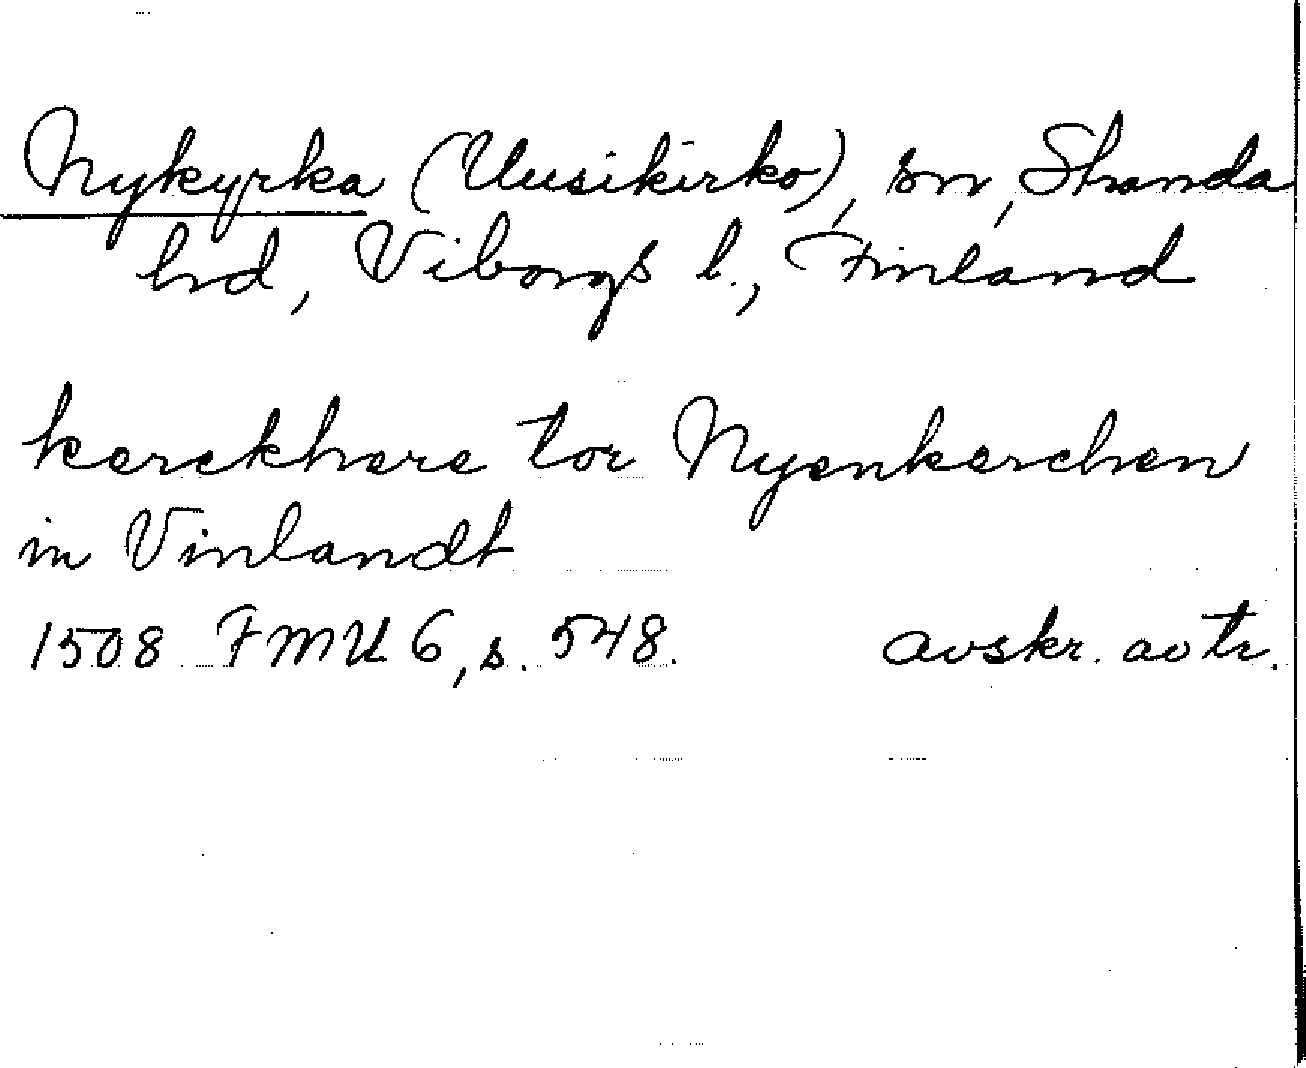 Nykyrka (Uusikirko), sn, Stranda
hd, Viborgs l., Finland
kerckhere tor Nyenkerchen
in Vinlandt
1508 FMU 6, s. 548. avskr. av tr.